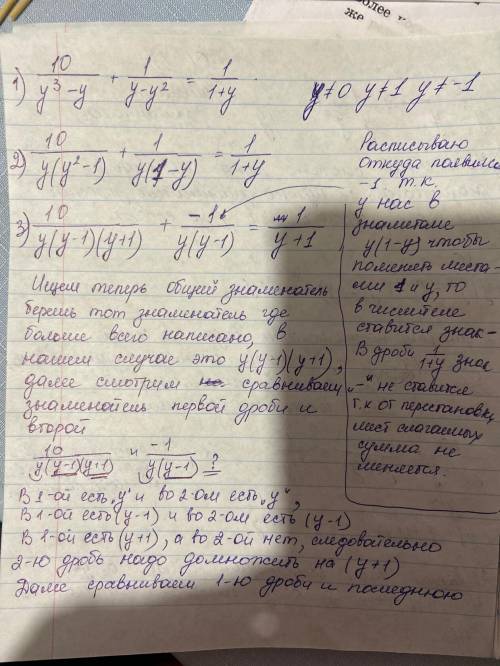 олее
же
1) 10/(y³-y) + 1/(y-y²) = 1/(1+y)
y≠0 y≠1 y≠-1
2) 10/(y(y²-1)) + 1/(y(1-y)) = 1/(1+y)
3) 10/(y(y-1)(y+1)) + -1/(y(y-1)) = 1/(y+1)
Расписываю
откуда появилась
-1 т.к.
у нас в
знаменателе
y(1-y) чтобы
поменять места-
ми 1 и y, то
в числителе
ставится знак -
В дроби 1/(1+y) знак
„-“ не ставится
т.к от перестановки
мест слагаемых
сумма не
меняется.
Ищем теперь общий знаменатель
берешь тот знаменатель где
больше всего написано, в
нашем случае это y(y-1)(y+1),
далее смотрим сравниваем
знаменатель первой дроби и
второй
10/(y(y-1)(y+1)) и -1/(y(y-1)) ?
В 1-ой есть „y“ и во 2-ом есть „y“,
В 1-ой есть (y-1) и во 2-ом есть (y-1)
В 1-ой есть (y+1), а во 2-ой нет, следовательно
2-ю дробь надо домножить на (y+1)
Далее сравниваем 1-ю дробь и последнюю